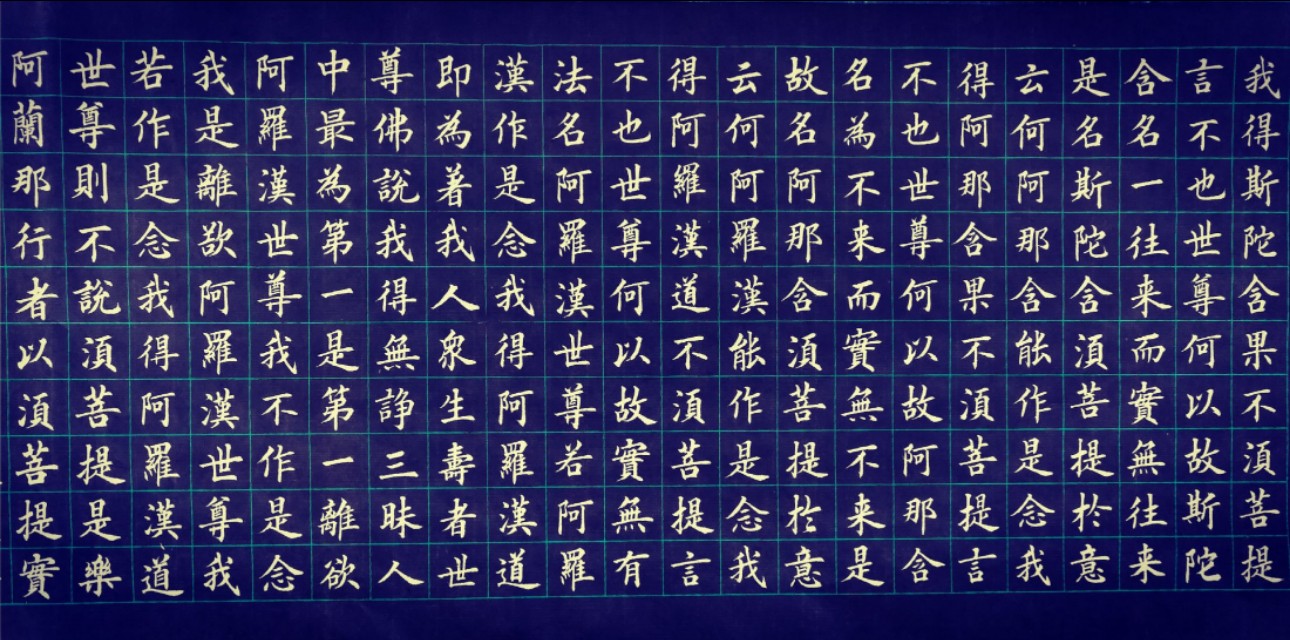 我得斯陀含果不須菩提
言不也世尊何以故斯陀
含名一往来而實無往来
是名斯陀含須菩提於意
云何阿那含能作是念我
得阿那含果不須菩提言
不也世尊何以故阿那含
名為不来而實無不来是
故名阿那含須菩提於意
云何阿羅漢能作是念我
得阿羅漢道不須菩提言
不也世尊何以故實無有
法名阿羅漢世尊若阿羅
漢作是念我得阿羅漢道
即為著我人眾生壽者世
尊佛說我得無諍三昧人
中最為第一是第一離欲
阿羅漢世尊我不作是念
我是離欲阿羅漢世尊我
若作是念我得阿羅漢道
世尊則不說須菩提是樂
阿蘭那行者以須菩提實